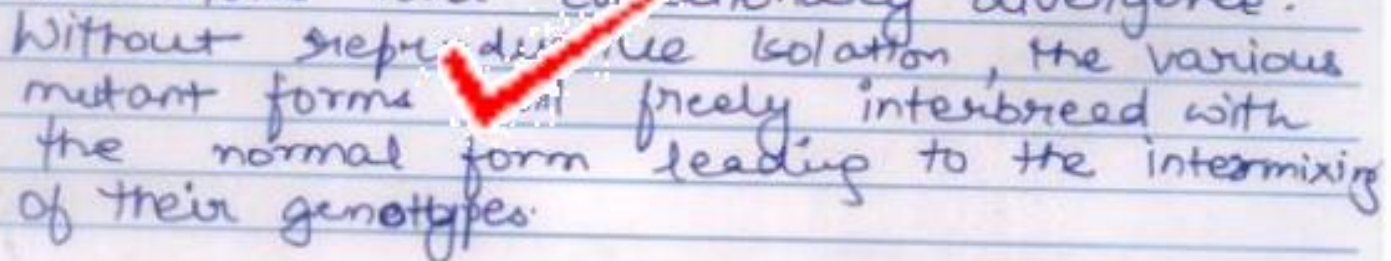 divergence.
Without reproductive Isolation, the various
mutant forms freely interbreed with
the normal form leading to the intermixing
of their genotypes.